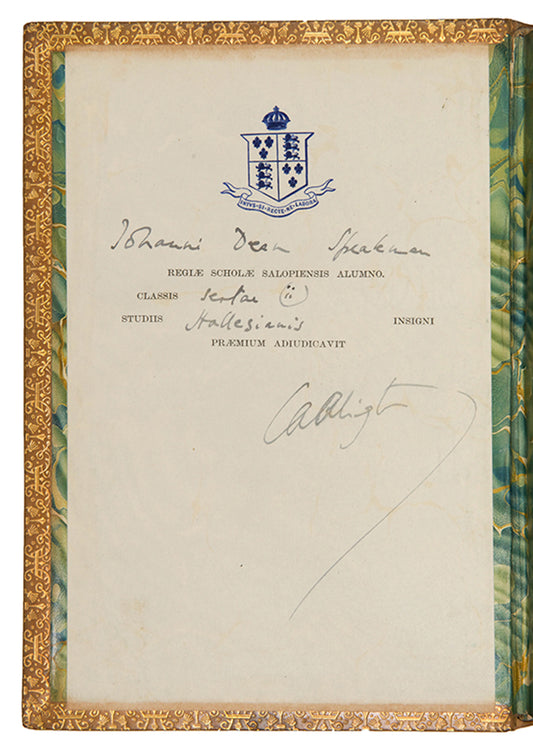 INTVS·SI·RECTE·NE·LABORA
Johanni Dean Speakman
REGIÆ SCHOLÆ SALOPIENSIS ALUMNO.
CLASSIS sextae (ii)
STUDIIS INSIGNI
PRÆMIUM ADIUDICAVIT